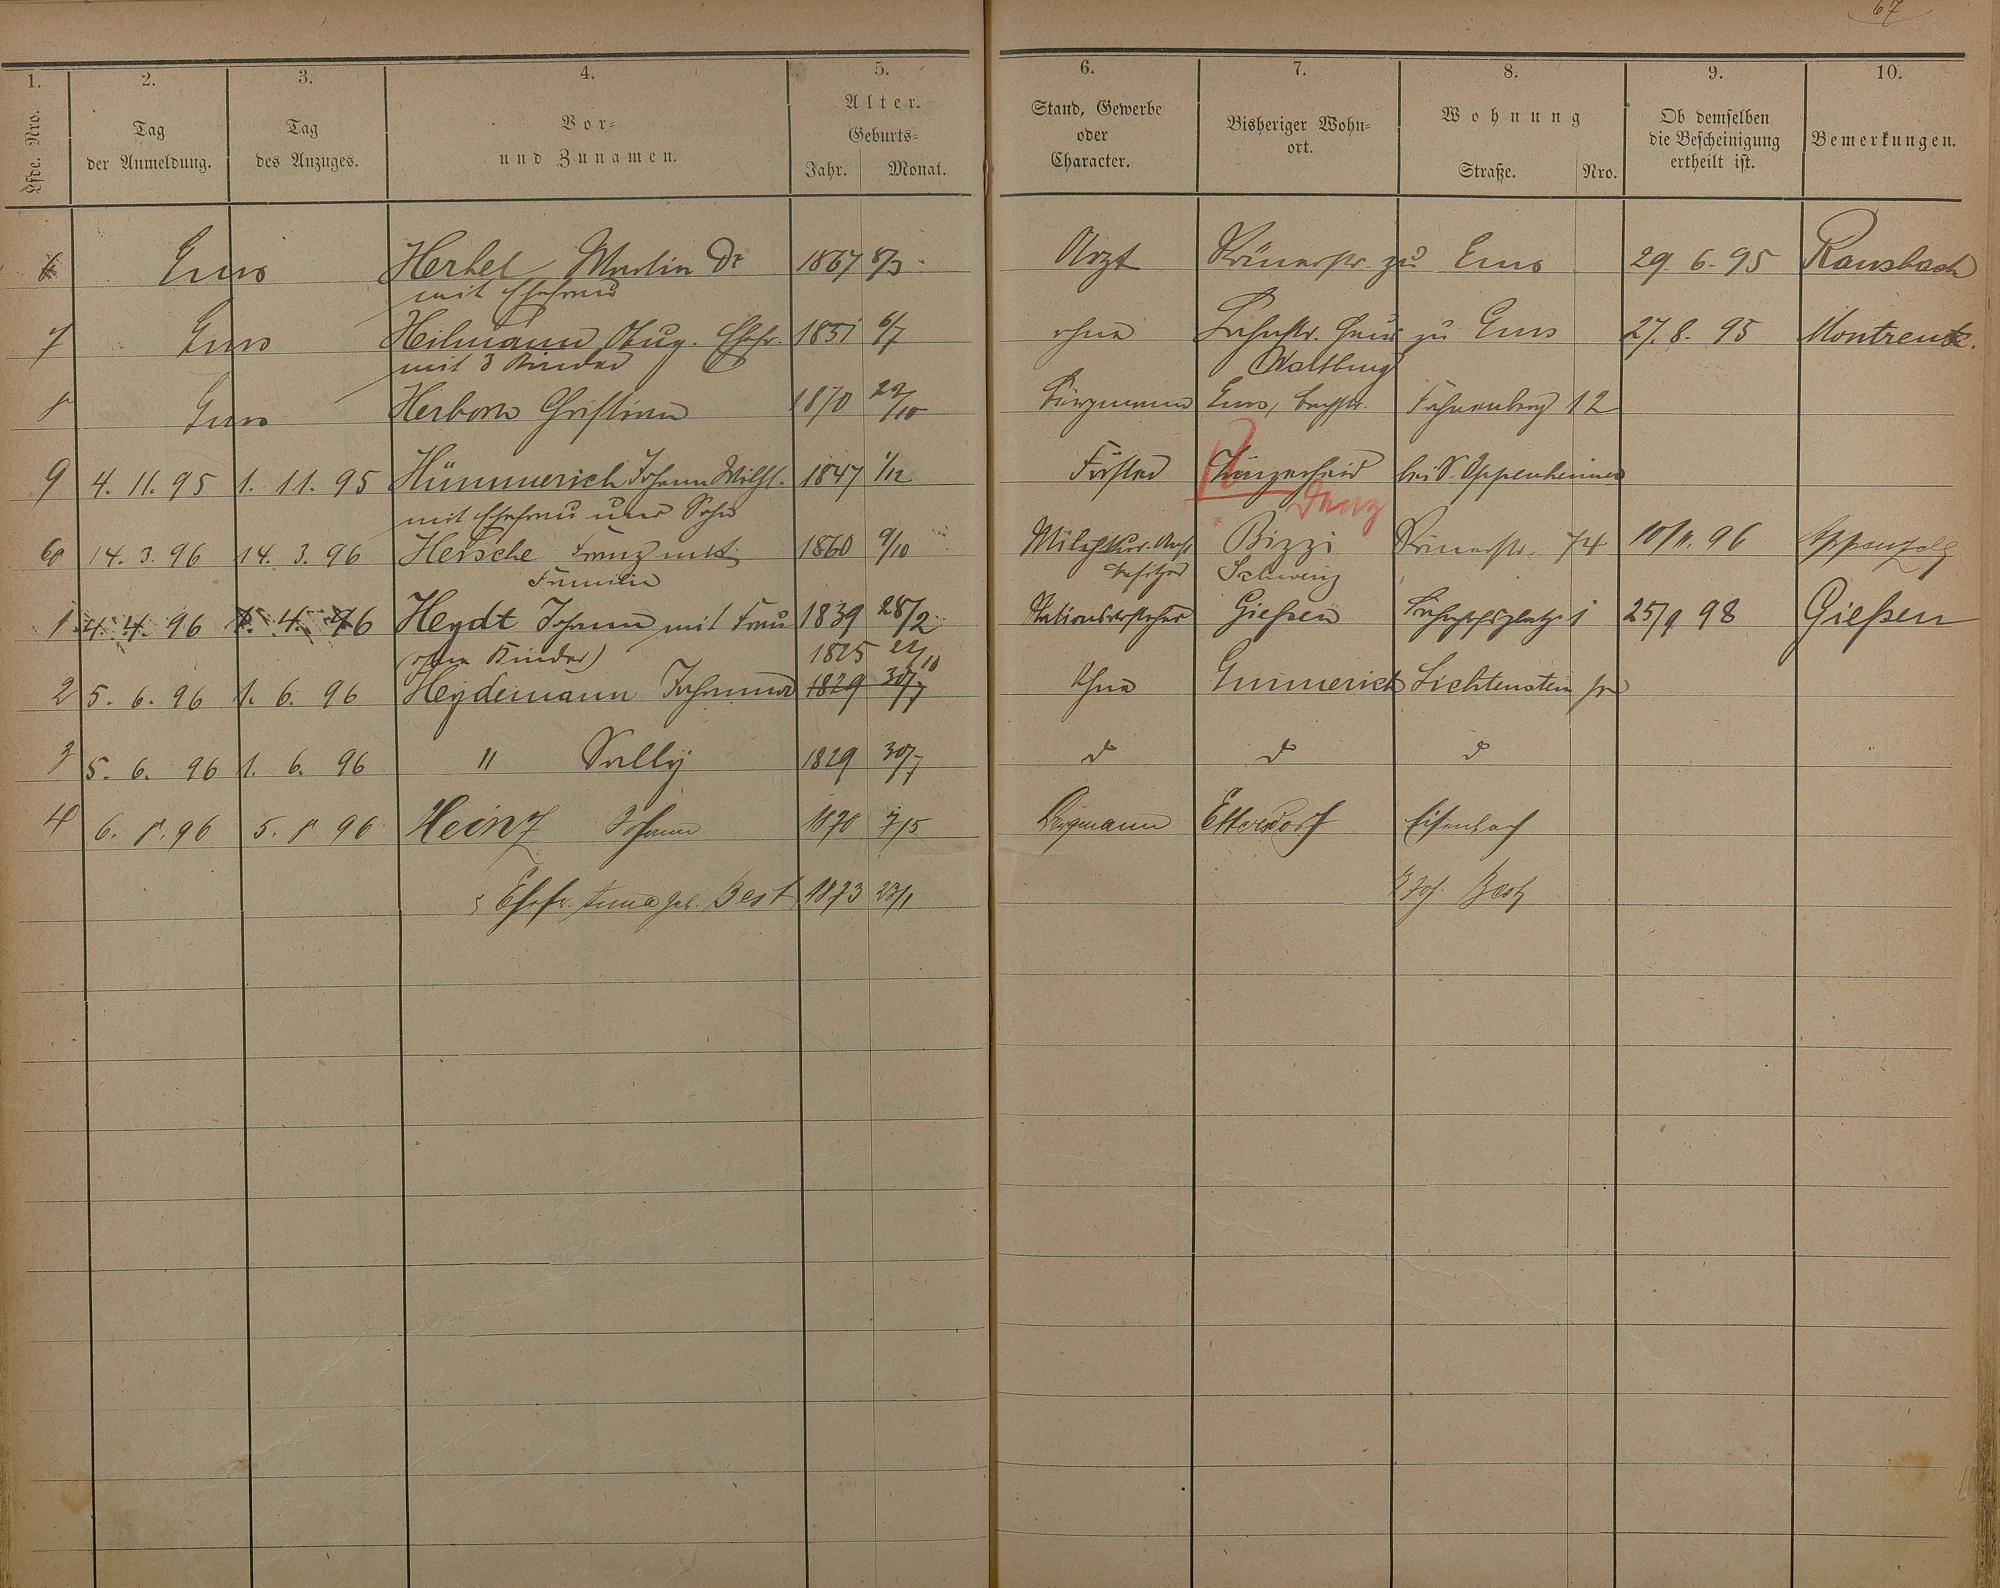 67
1. 2. 3. 4. 5. 6. 7. 8. 9. 10.
Lfde. Nro. Tag der Anmeldung. Tag des Anzuges. Vor- und Zunamen. Alter. Geburts- Jahr. Monat. Stand, Gewerbe oder Character. Bisheriger Wohn- ort. Wohnung Straße. Nro. Ob demselben die Bescheinigung ertheilt ist. Bemerkungen.
6 Ems Herkel Martin Dr 1867 8/3 Arzt Römerstr. zu Ems 29. 6. 95 Ransbach
mit Ehefrau
7 Ems Heilmann Aug. Ehefr. 1851 6/7 ohne Lahnstr. Haus zu Ems 27. 8. 95
mit 3 Kinder
8 Ems Herborn Christian 1870 22/10 Bergmann Ems, Bachstr. Fahnenberg 12
9 4. 11. 95 1. 11. 95 Hümmerich Johann Wilh. 1847 1/12 Förster bei S. Oppenheimer
mit Ehefrau und Sohn
60 14. 3. 96 14. 3. 96 Hersche Franz mit 1860 9/10 Römerstr. 74 10/11. 96
Familie Schweiz
1 4. 4. 96 1. 4. 96 Heydt Johann mit Frau 1839 28/2 Stationsvorsteher Gießen Bahnhofsplatz 1 25/9 98 Gießen
(ohne Kinder) 1825 22/10
2 5. 6. 96 1. 6. 96 Heydemann Johanna 1829 30/7 Ohne Emmerich Lichtenstein
3 5. 6. 96 1. 6. 96 " Sally 1829 30/7 do do do
4 6. 8. 96 5. 8 96 Heinz Johann 1870 7/5 Bergmann Ettersdorf Eisenbach
Ehefr. Anna geb. Best 1873 23/1